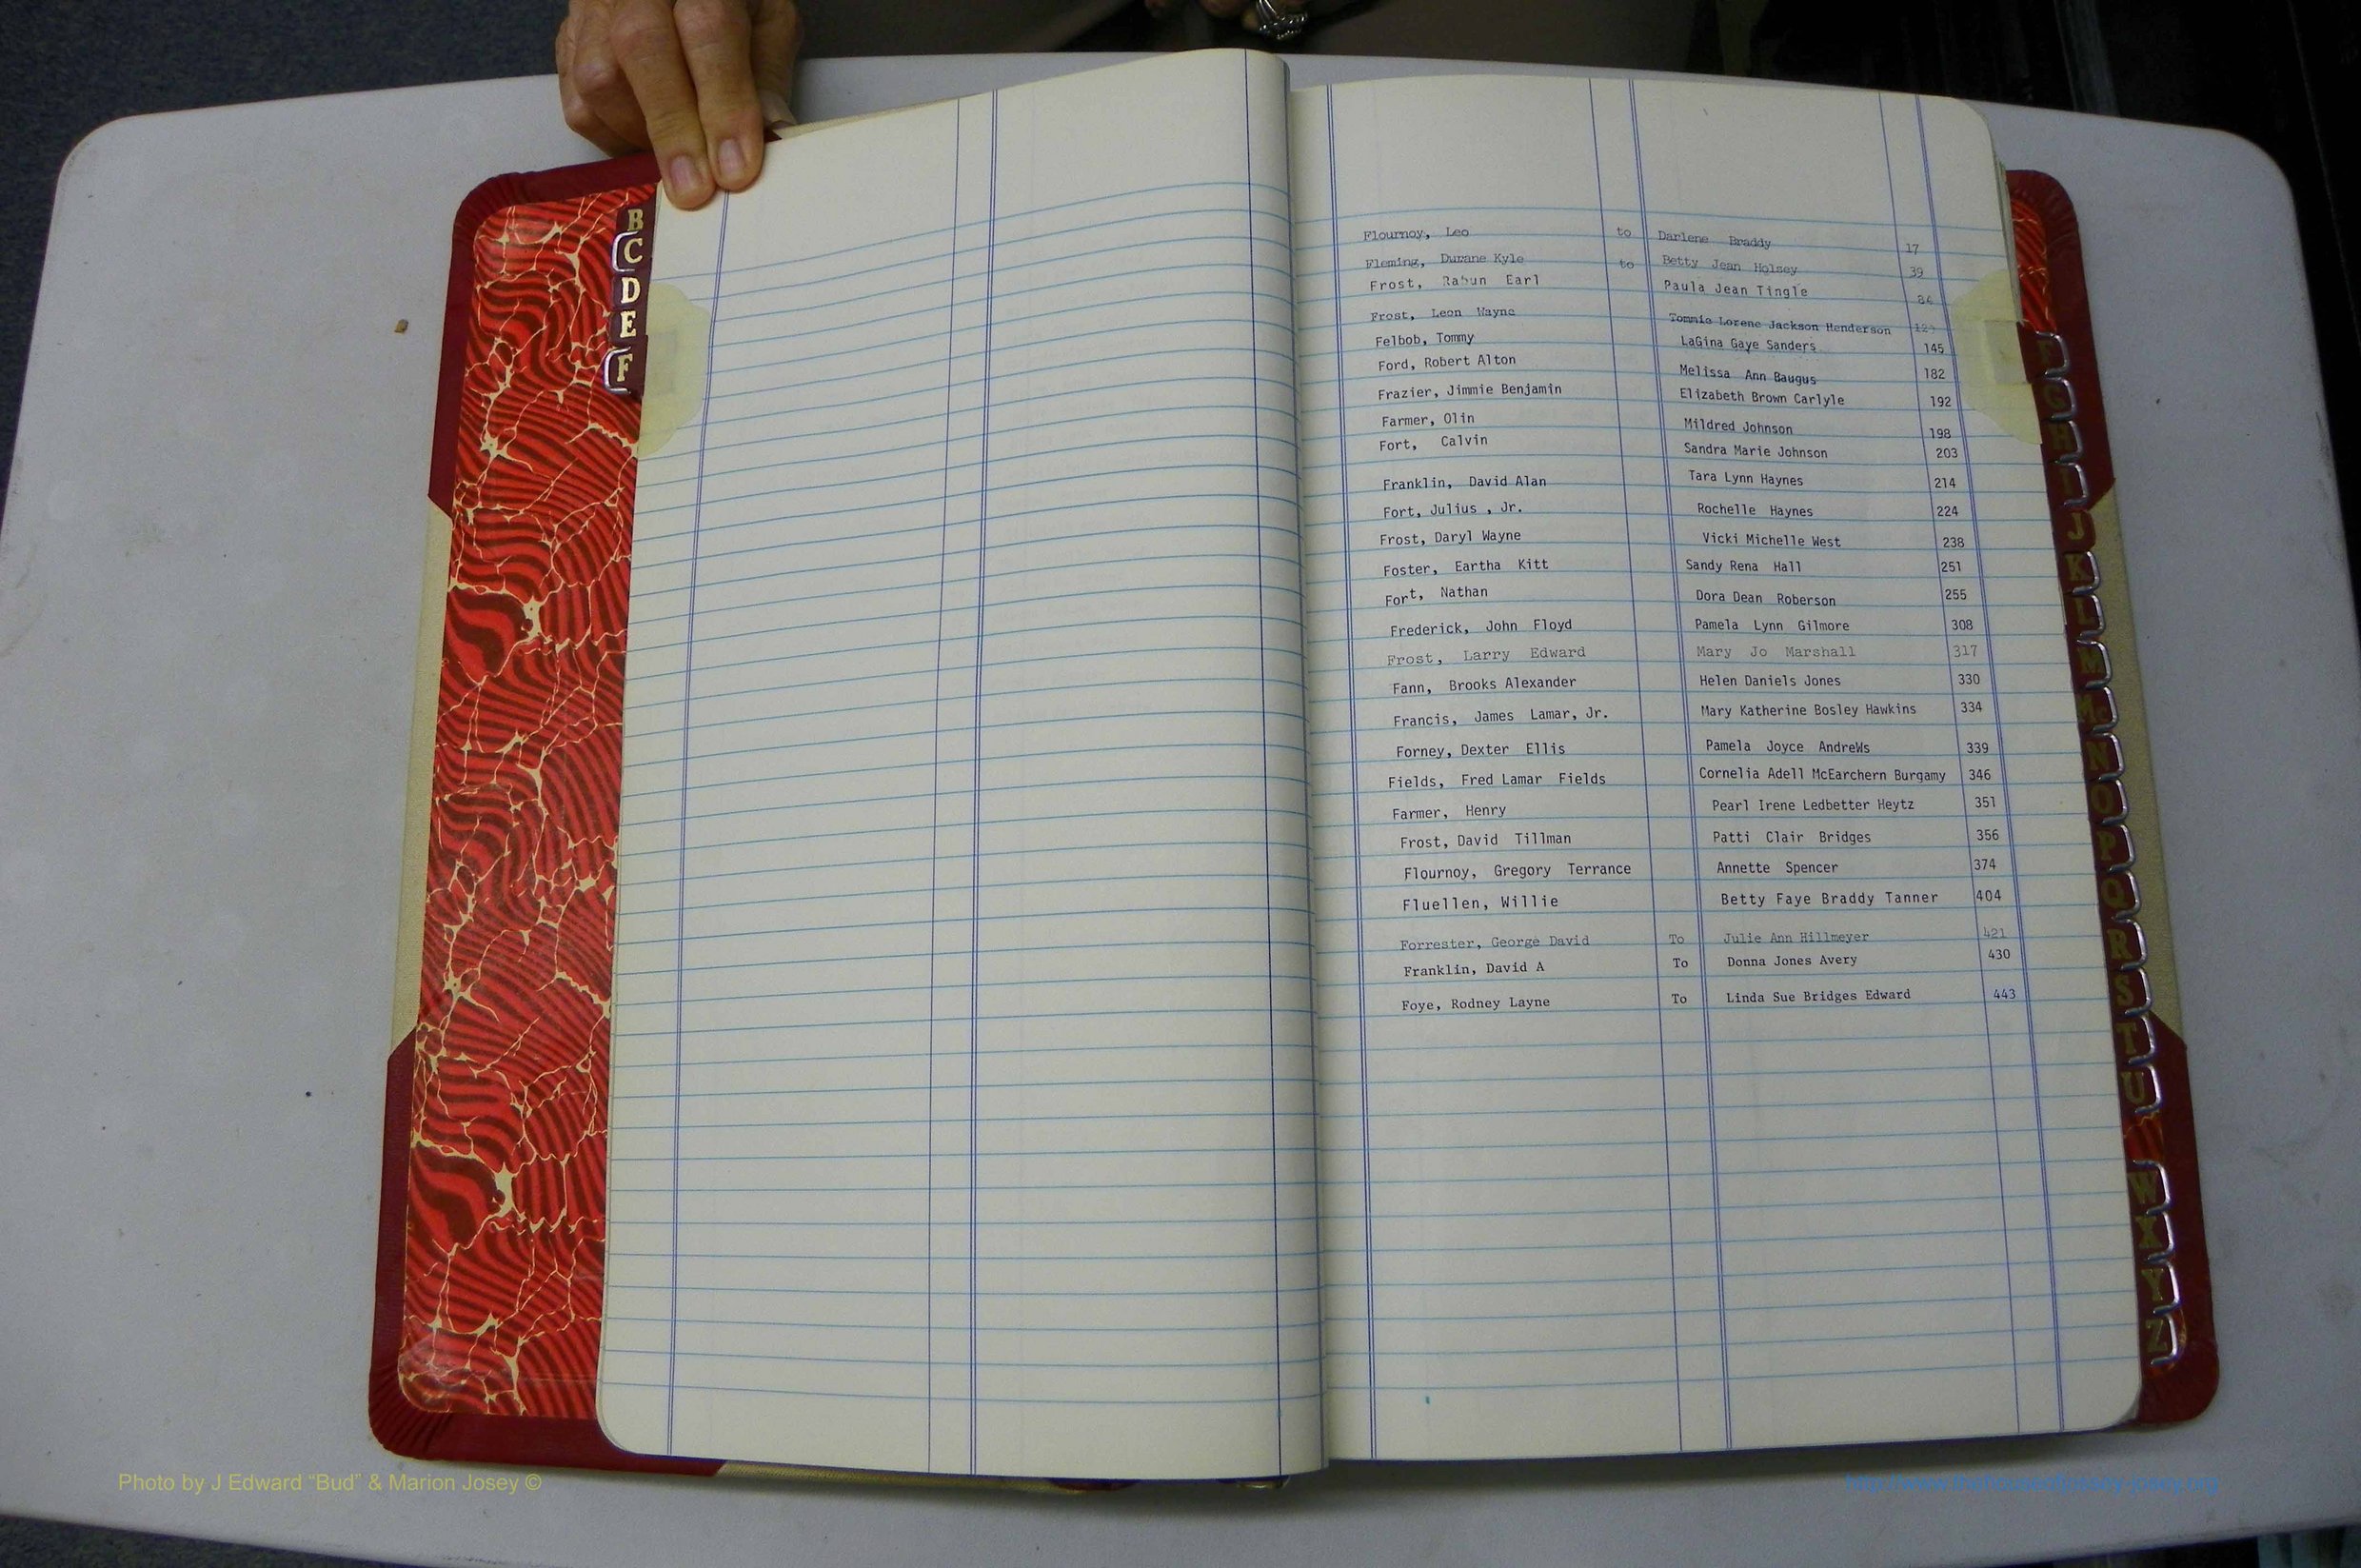 B
C
D
E
F
Flournoy, Leo to Darlene Braddy 17
Fleming, Duwane Kyle to Betty Jean Holsey 39
Frost, Rabun Earl Paula Jean Tingle 84
Frost, Leon Wayne Tommie Lorene Jackson Henderson
Felbob, Tommy LaGina Gaye Sanders 145
Ford, Robert Alton Melissa Ann Baugus 182
Frazier, Jimmie Benjamin Elizabeth Brown Carlyle 192
Farmer, Olin Mildred Johnson 198
Fort, Calvin Sandra Marie Johnson 203
Franklin, David Alan Tara Lynn Haynes 214
Fort, Julius , Jr. Rochelle Haynes 224
Frost, Daryl Wayne Vicki Michelle West 238
Foster, Eartha Kitt Sandy Rena Hall 251
Fort, Nathan Dora Dean Roberson 255
Frederick, John Floyd Pamela Lynn Gilmore 308
Frost, Larry Edward Mary Jo Marshall 317
Fann, Brooks Alexander Helen Daniels Jones 330
Francis, James Lamar, Jr. Mary Katherine Bosley Hawkins 334
Forney, Dexter Ellis Pamela Joyce AndreWs 339
Fields, Fred Lamar Fields Cornelia Adell McEarchern Burgamy 346
Farmer, Henry Pearl Irene Ledbetter Heytz 351
Frost, David Tillman Patti Clair Bridges 356
Flournoy, Gregory Terrance Annette Spencer 374
Fluellen, Willie Betty Faye Braddy Tanner 404
Forrester, George David To Julie Ann Hillmeyer 421
Franklin, David A To Donna Jones Avery 430
Foye, Rodney Layne To Linda Sue Bridges Edward 443
F
G
H
I
J
K
L
M
Mc
N
O
P
Q
R
S
T
U
W
X
Y
Z
Photo by J Edward “Bud” & Marion Josey ©